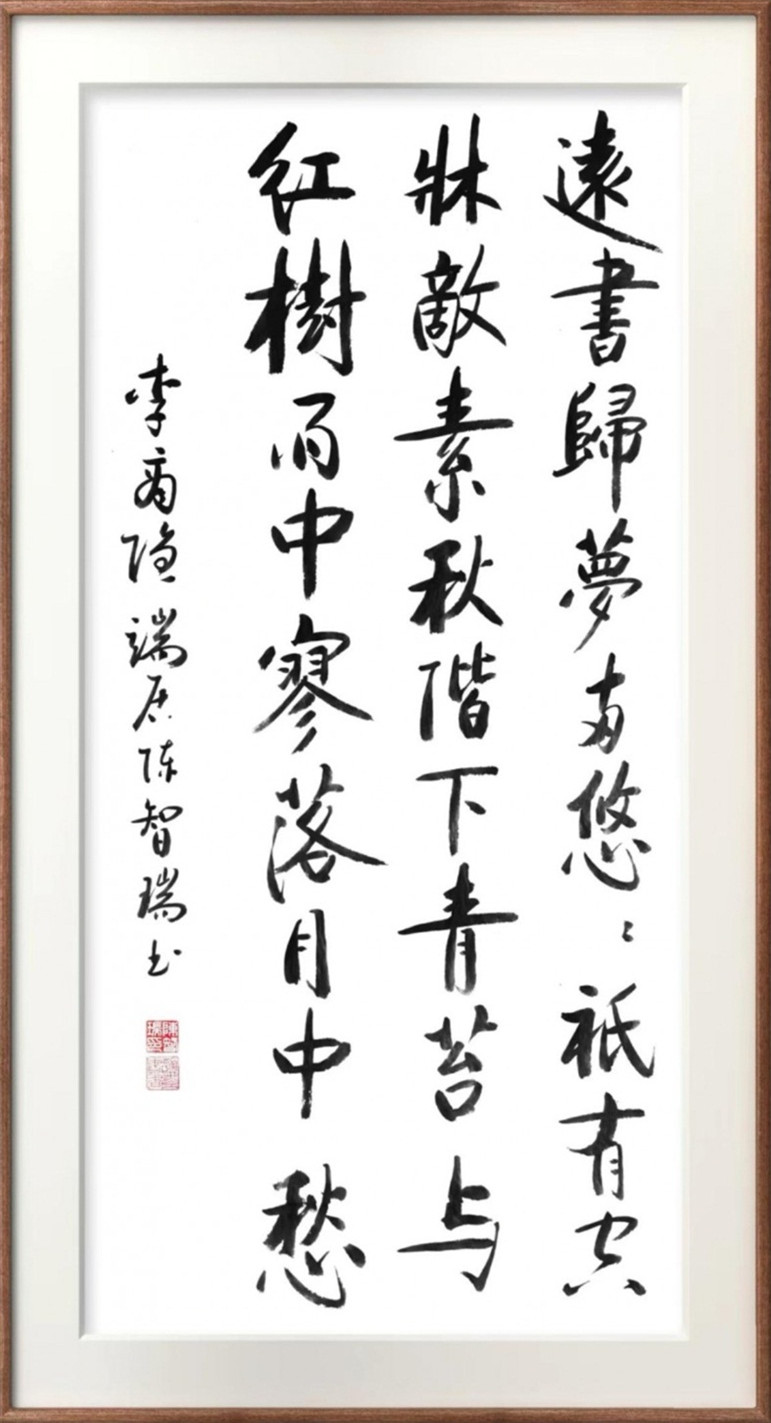 遠書歸夢两悠〻祇有空
牀敵素秋階下青苔与
红樹雨中寥落月中愁
李商隐端居陈智瑞书